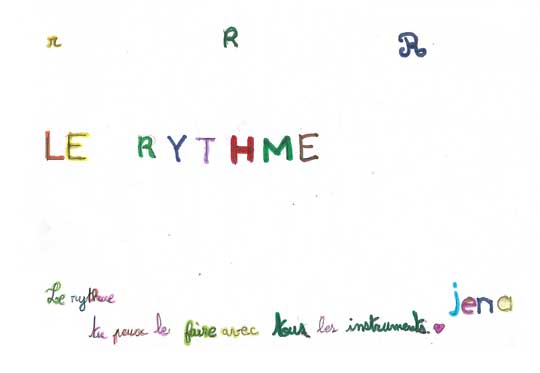 r R R
LE RYTHME
Le rythme
tu peux le faire avec tous les instruments.
jena